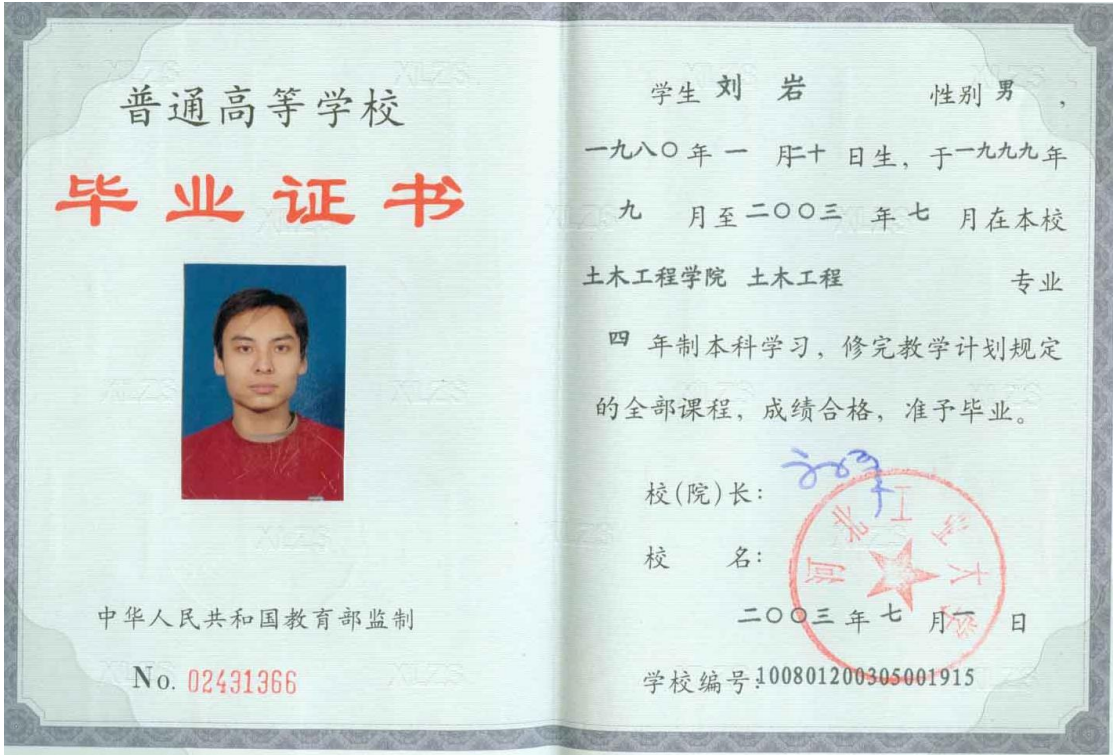 普通高等学校
毕业证书
中华人民共和国教育部监制
No. 02431366
学生 刘 岩 性别 男 ,
一九八〇年 一 月二十 日生, 于一九九九年
九 月至二〇〇三 年 七 月在本校
土木工程学院 土木工程 专业
四 年制本科学习, 修完教学计划规定
的全部课程, 成绩合格, 准予毕业。
校(院)长:
校 名:
河北工业大学
二〇〇三 年 七 月 一 日
学校编号:100801200305001915
XLZS